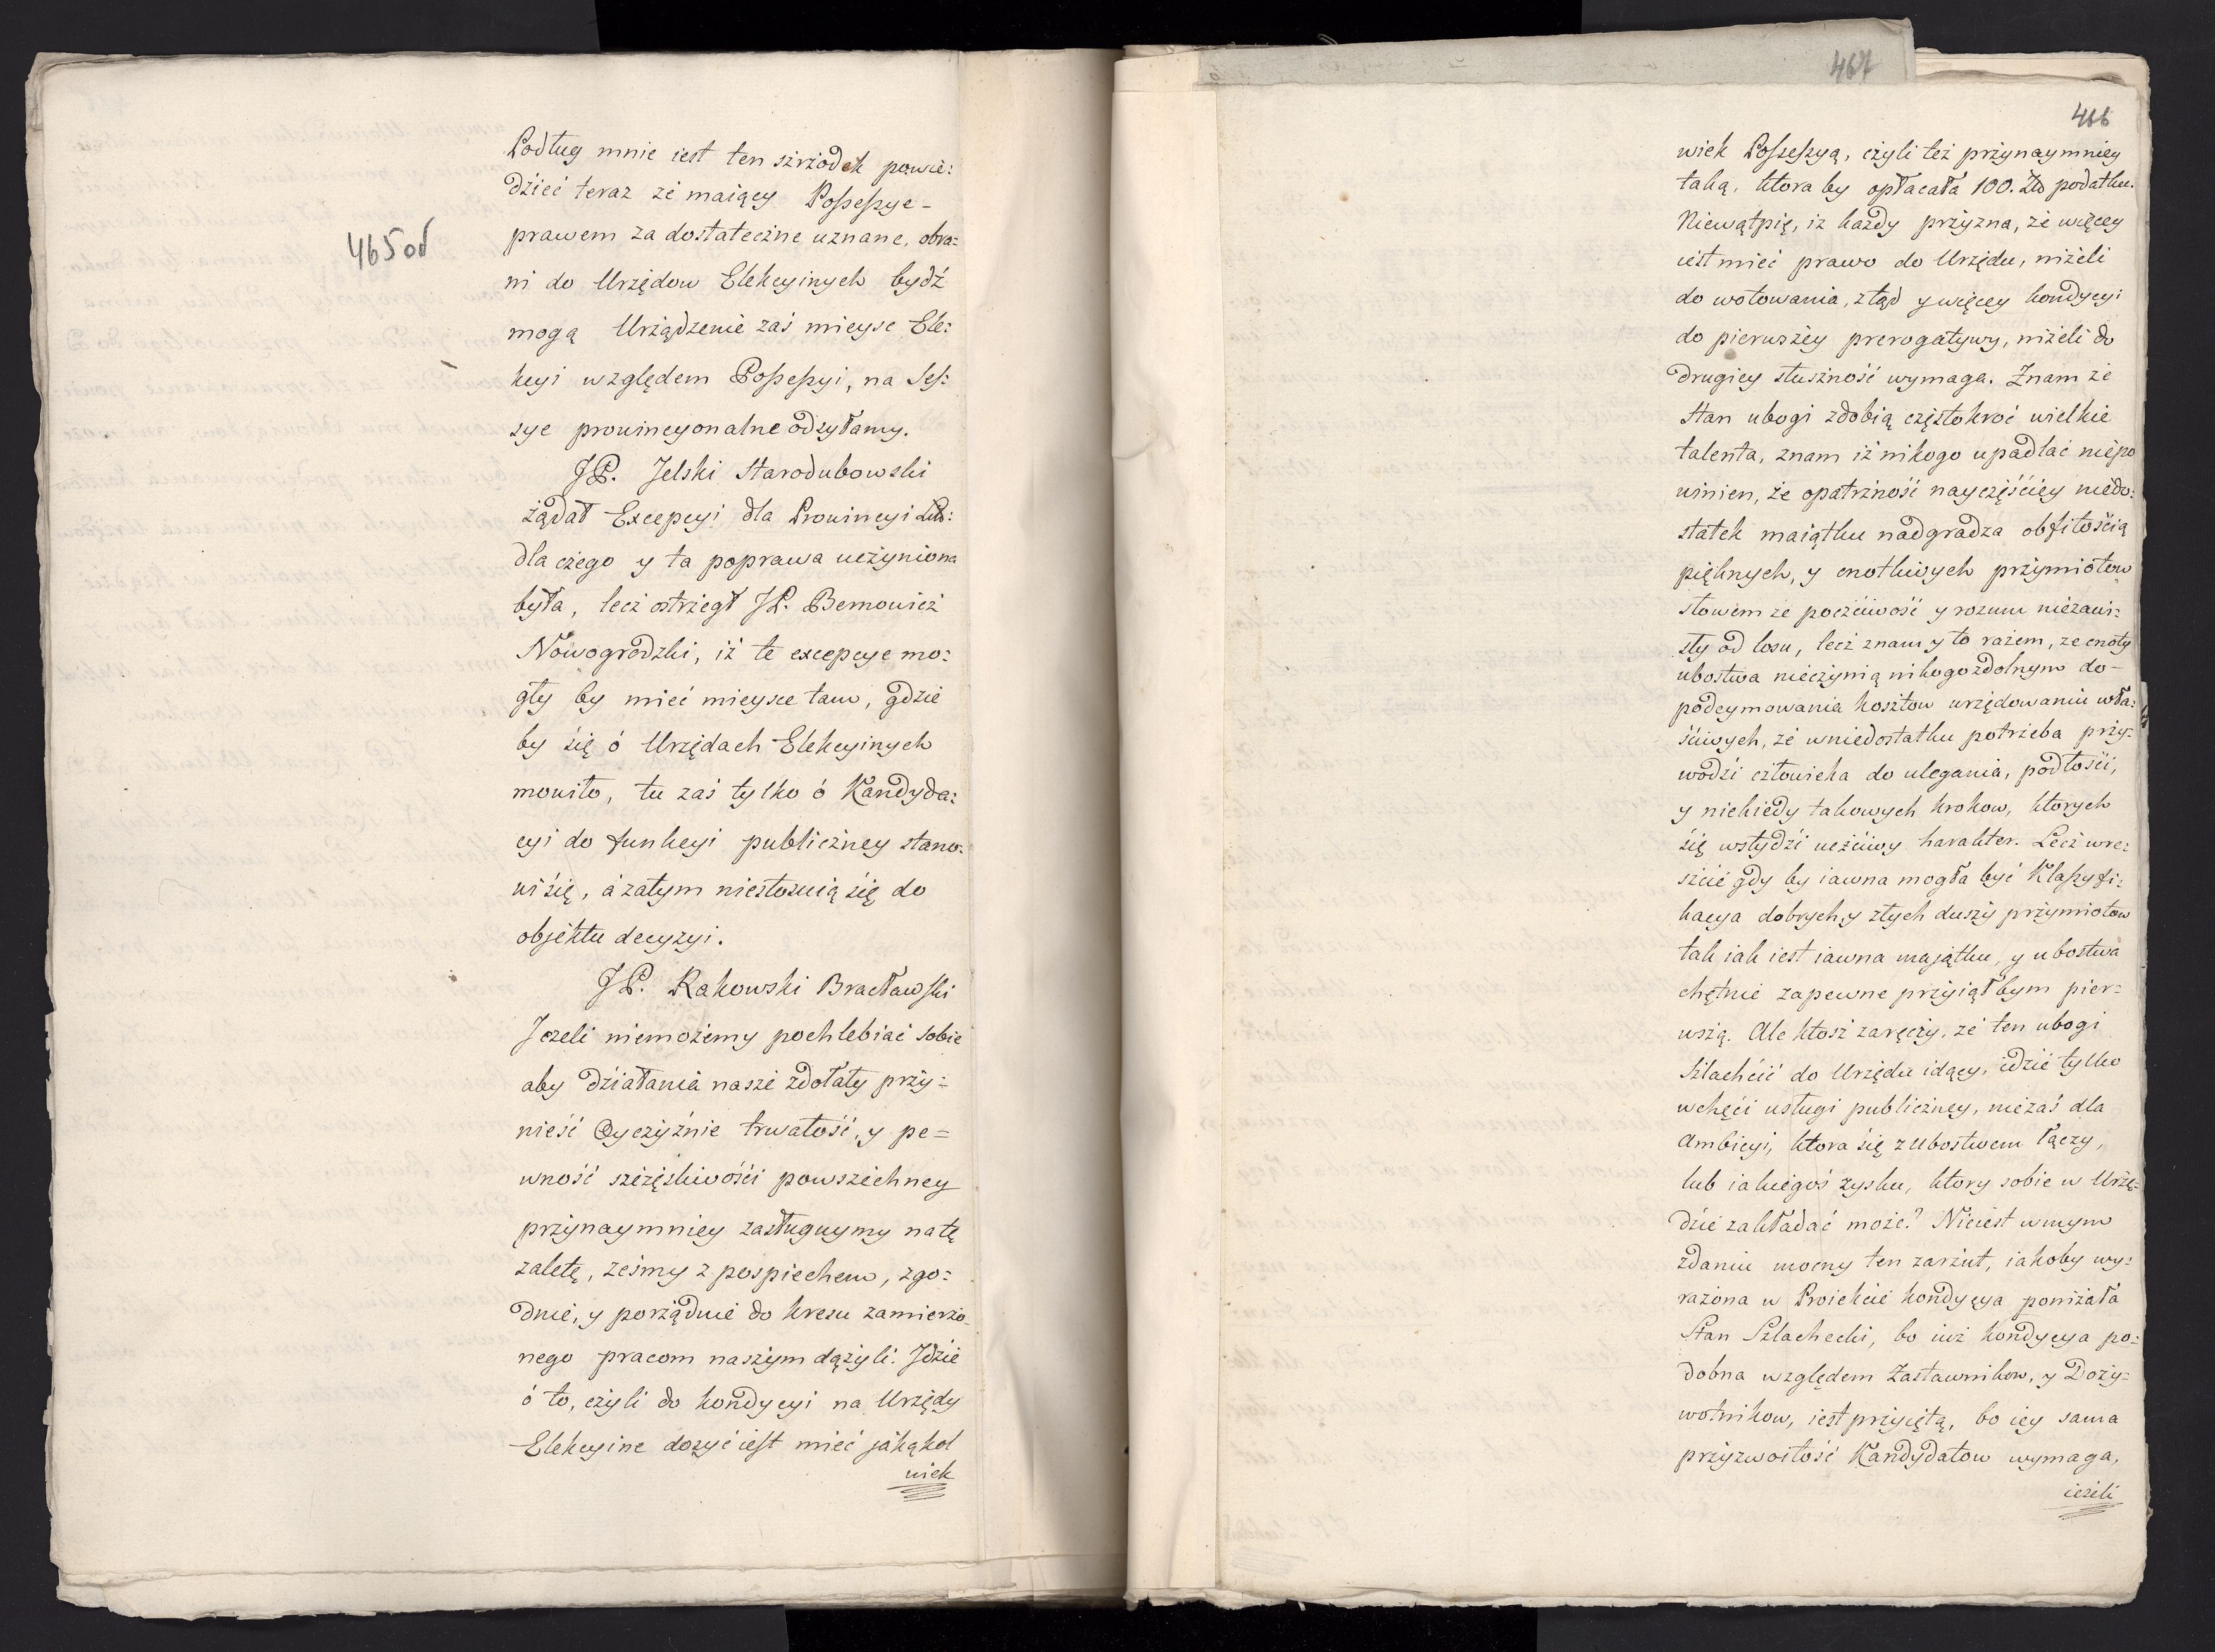 Podług mnie iest ten szrzodek powie:
dzieć teraz że maiący Possessye -
prawem za dostateczne uznane, obra:
ni do Urzędow Elekcyinych bydź
mogą Urządzenie zaś mieysc Ele:
kcyi względem Possessyi, na Ses:
sye prowincyonalne odsyłamy.
JP. Jelski Starodubowski
żądał Excepcyi dla Prowincyi Lit:
dla czego y ta poprawa uczyniona
była, lecz ostrzegł JP. Bernowicz
Nowogrodzki, iż te excepcye mo:
gły by mieć mieysce tam, gdzie
by się ó Urzędach Elekcyinych
mowiło, tu zaś tylko ó Kandyda:
cyi do funkcyi publiczney stano:
wi się, á zatym niestosuią się do
objektu decyzyi.
JP. Rakowski Bracławski
Jeżeli niemożemy pochlebiać sobie
aby działania nasze zdołały przy:
nieść Oyczyźnie trwałość, y pe=
wność szczęśliwości powszechney
przynaymniey zasługuymy na tę
zaletę, żeśmy z pospiechem, zgo:
dnie, y porządnie do kresu zamierzo
nego pracom naszym dążyli. Jdzie
ó to, czyli do kondycyi na Urzędy
Elekcyine dosyć iest mieć jakąkol
wiek
465od
467
466
wiek Possessyą, czyli też przynaymniey
taką, ktora by opłacała 100. Zło podatku.
Niewątpię, iż każdy przyzna, że więcey
iest mieć prawo do Urzędu, niżeli
do wotowania, ztąd y więcey kondycyi
do pierwszey prerogatywy, niżeli do
drugiey słuszność wymaga. Znam że
Stan ubogi zdobią częstokroć wielkie
talenta, znam iż nikogo upadlać niepo
winien, że opatrzność nayczęściey niedo:
statek maiątku nadgradza obfitością
pięknych, y cnotliwych przymiotow
słowem że poczciwość y rozum niezawi:
sły od losu, lecz znam y to razem, ze cnoty
ubostwa nieczynią nikogo zdolnym do -
podeymowania kosztow urzędowaniu wła:
ściwych, że w niedostatku potrzeba przy:
wodzi człowieka do ulegania, podłości,
y niekiedy takowych krokow, ktorych
się wstydzi uczciwy harakter. Lecz wre:
szcie gdy by iawna mogła być Klassyfi:
kacya dobrych, y złych duszy przymiotow
tak iak iest iawna majątku, y ubostwa
chętnie zapewne przyiął bym pier=
wszą. Ale ktosz zaręczy, że ten ubogi
Szlachcic do Urzędu idący, idzie tylko
w chęci usługi publiczney, nie zaś dla
Ambicyi, ktora się z ubostwem łączy,
lub iakiegoś zysku, ktory sobie w Urzę=
dzie zakładać może? Nieiest w mym
zdaniu mocny ten zarzut, iakoby wy:
rażona w Proiekcie kondycya poniżała
Stan Szlachecki, bo iuż kondycya po=
dobna względem Zastawnikow, y Doży=
wotnikow, iest przyiętą, bo iey sama
przyzwoitość Kandydatow wymaga,
ieżeli